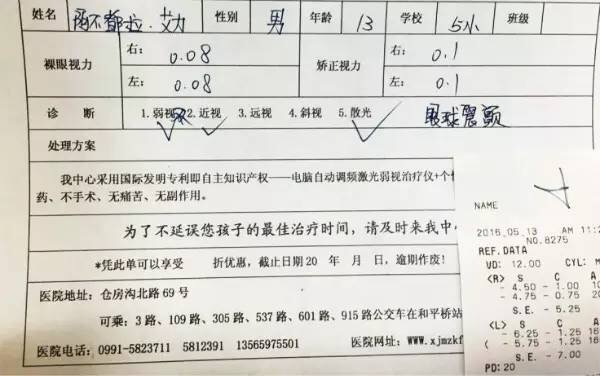 姓名 阿不都拉·艾力 性别 男 年龄 13 学校 5小 班级
裸眼视力 右: 0.08 矫正视力 右: 0.1
左: 0.08 左: 0.1
诊断 1.弱视 双 2.近视 3.远视 4.斜视 5.散光 眼球震颤
处理方案
我中心采用国际发明专利即自主知识产权——电脑自动调频激光弱视治疗仪+个
药、不手术、无痛苦、无副作用。
为了不延误您孩子的最佳治疗时间,请及时来我中
*凭此单可以享受 折优惠,截止日期20 年 月 日,逾期作废!
医院地址:仓房沟北路69号
可乘:3路、109路、305路、537路、601路、915路公交车在和平桥站
医院电话:0991-5823711 5812391 13565975501 医院网址:Www.xjmzkf
NAME
2016.05.13 AM 11:2
NO.8275
REF.DATA
VD: 12.00 CYL:
<R> S C A
- 4.50 - 1.00 10
- 4.75 - 0.75 20
S.E. - 5.25
<L> S C A
- 6.25 - 1.25 16
( - 5.75 - 1.25 16
S.E. - 7.00
PD: 20